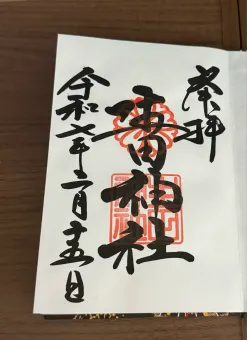 奉拝
神社
令和七年二月十五日